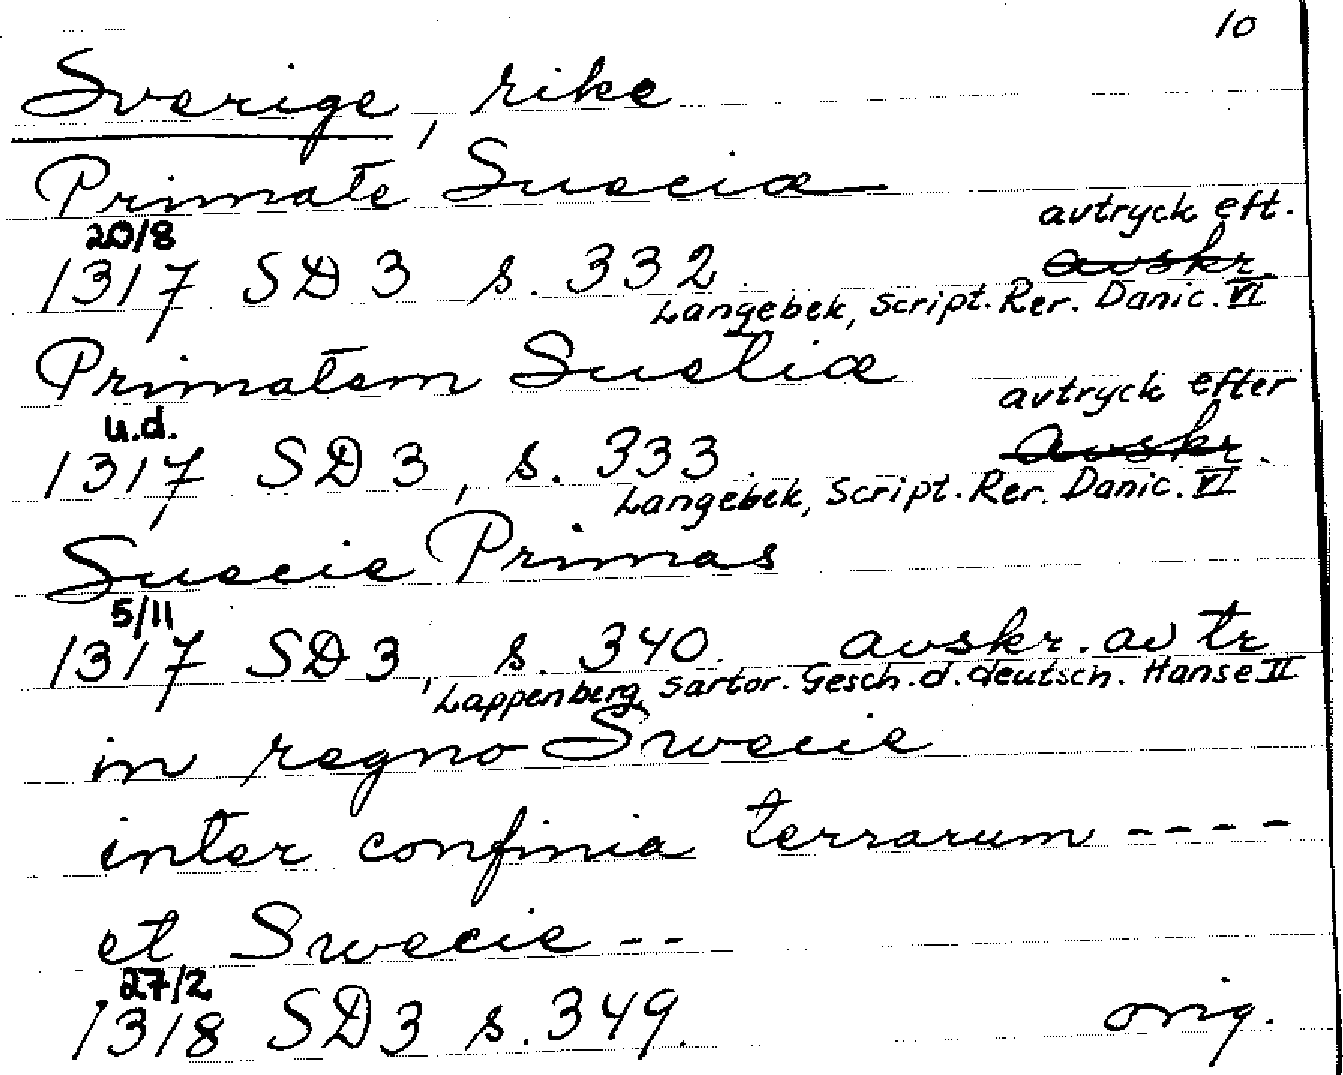 10
Sverige, rike
Primate Sueciæ
avtryck eft.
20/8
1317 SD 3 s. 332 avskr.
Langebek, Script. Rer. Danic. VI
Primatem Suetiæ
avtryck efter
u.d.
1317 SD 3, s. 333. avskr.
Langebek, Script. Rer. Danic. VI
Suecie Primas
5/11
1317 SD 3, s. 340. avskr. av tr
Lappenberg Sartor. Gesch. d. deutsch. Hanse II
in regno Swecie
inter confinia terrarum ----
et Swecie --
27/2
1318 SD 3 s. 349. orig.